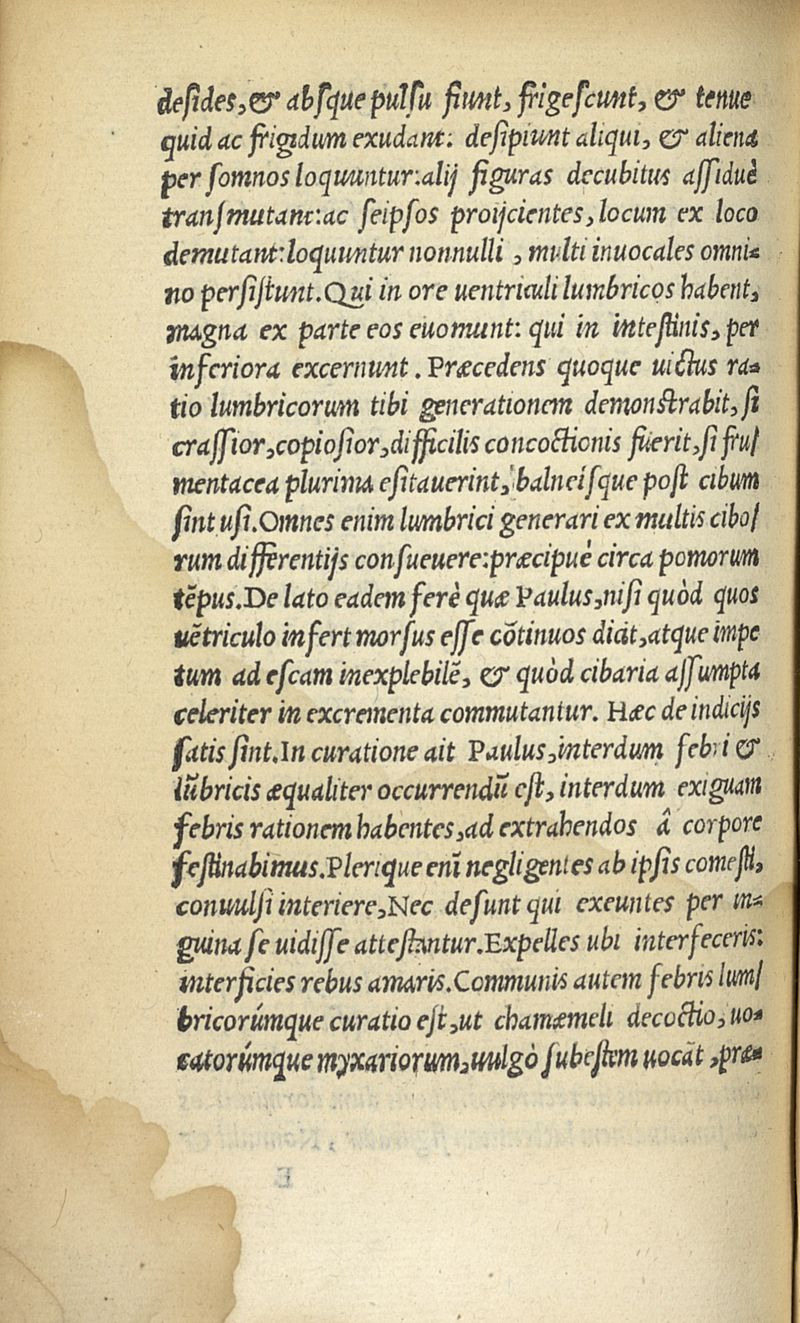 deſides,& abſque pulſu fiunt, frigeſcunt, & tenue
quid ac frigidum exudant: deſipiunt aliqui, & aliena
per ſomnos loquuntur:alij figuras decubitus aſſiduè
tranſmutant:ac ſeipſos proijcientes,locum ex loco
demutant:loquuntur nonnulli , multi inuocales omni-
no perſiſtunt.Qui in ore uentriculi lumbricos habent,
magna ex parte eos euomunt: qui in inteſtinis, per
inferiora excernunt . Præcedens quoque uictus ra-
tio lumbricorum tibi generationem demonſtrabit, ſi
craſſior,copioſior,difficilis concoctionis fuerit,ſi fru/
mentacea plurima eſitauerint, balneiſque poſt cibum
ſint uſi.Omnes enim lumbrici generari ex multis cibo/
rum differentijs conſueuere:præcipuè circa pomorum
tēpus.De lato eadem ferè quæ Paulus,niſi quòd quos
uētriculo infert morſus eſſe cōtinuos dicit,atque impe
tum ad eſcam inexplebilē, & quòd cibaria aſſumpta
celeriter in excrementa commutantur. Hæc de indicijs
ſatis ſint.In curatione ait Paulus,interdum febri &
lūbricis æqualiter occurrendū eſt, interdum exiguam
febris rationem habentes,ad extrahendos â corpore
feſtinabimus.Plerique enī negligentes ab ipſis comeſti,
conuulſi interiere,Nec deſunt qui exeuntes per in-
guina ſe uidiſſe atteſtantur.Expelles ubi interfeceris:
interficies rebus amaris.Communis autem febris lum/
bricorúmque curatio eſt,ut chamæmeli decoctio, uo-
catorúmque myxariorum,uulgò ſubeſtem uocāt ,præ-